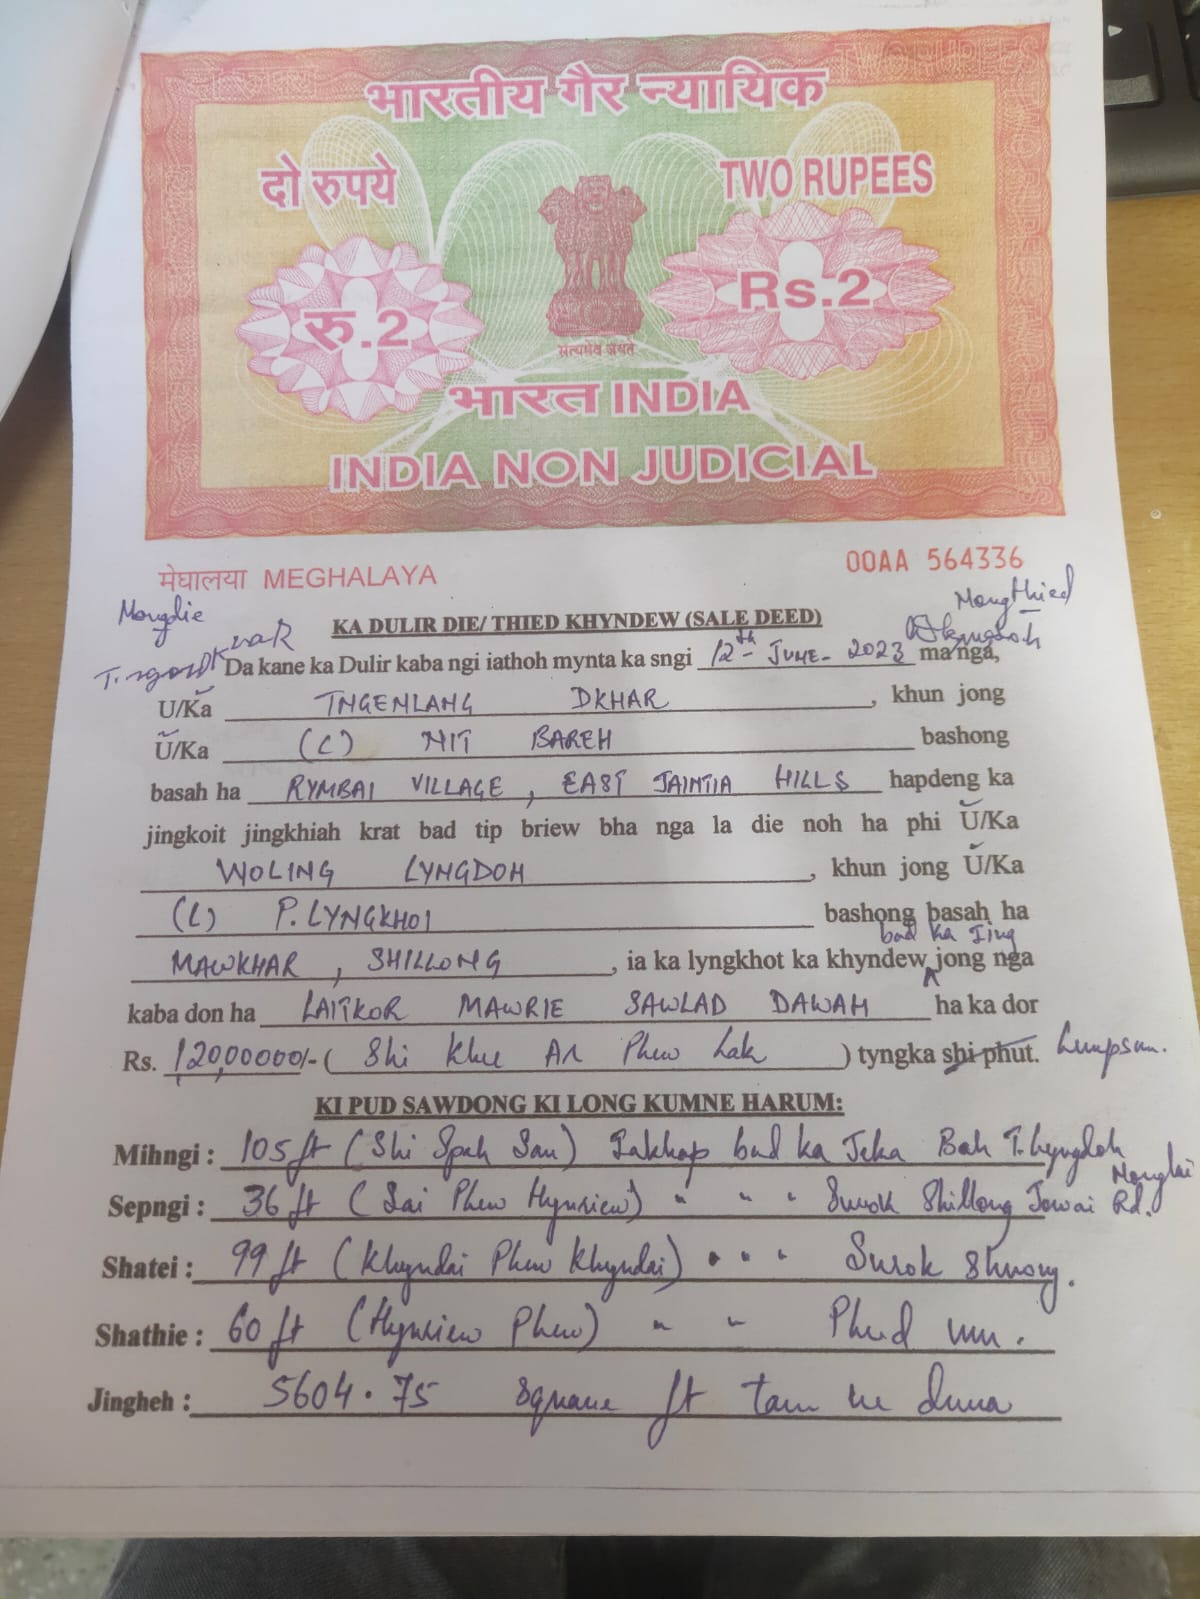 भारतीय गैर न्यायिक
दो रुपये TWO RUPEES
रु.2 Rs.2
सत्यमेव जयते
भारत INDIA
INDIA NON JUDICIAL
मेघालया MEGHALAYA 00AA 564336
Nongdie Nongthied
KA DULIR DIE/ THIED KHYNDEW (SALE DEED)
Da kane ka Dulir kaba ngi iathoh mynta ka sngi 12th JUNE- 2023 ma nga,
U/Ka TNGENLANG DKHAR, khun jong
U/Ka (L) NIT BAREH bashong
basah ha RYMBAI VILLAGE, EAST JAINTIA HILLS hapdeng ka
jingkoit jingkhiah krat bad tip briew bha nga la die noh ha phi U/Ka
WOLING LYNGDOH, khun jong U/Ka
(L) P. LYNGKHOI bashong basah ha
bad ka Jing
MAWKHAR, SHILLONG, ia ka lyngkhot ka khyndew jong nga
kaba don ha LAITKOR MAWRIE SAWLAD DAWAH ha ka dor
Rs. 1,20,00000/- (Shi Khlu Ar Phew Lak) tyngka shi phut. Lumpsum.
KI PUD SAWDONG KI LONG KUMNE HARUM:
Mihngi : 105 ft (Shi Spah San) Iakhap bad ka Jeka Bah T. Lyngdoh
Nonglai
Sepngi : 36 ft (Lai Phew Hynriew) " " " Surok Shillong Jowai Rd.
Shatei : 99 ft (Khyndai Phew Khyndai) " " " Surok Shnong.
Shathie : 60 ft (Hynriew Phew) " " Phud um.
Jingheh : 5604.75 Square ft tam ne duna